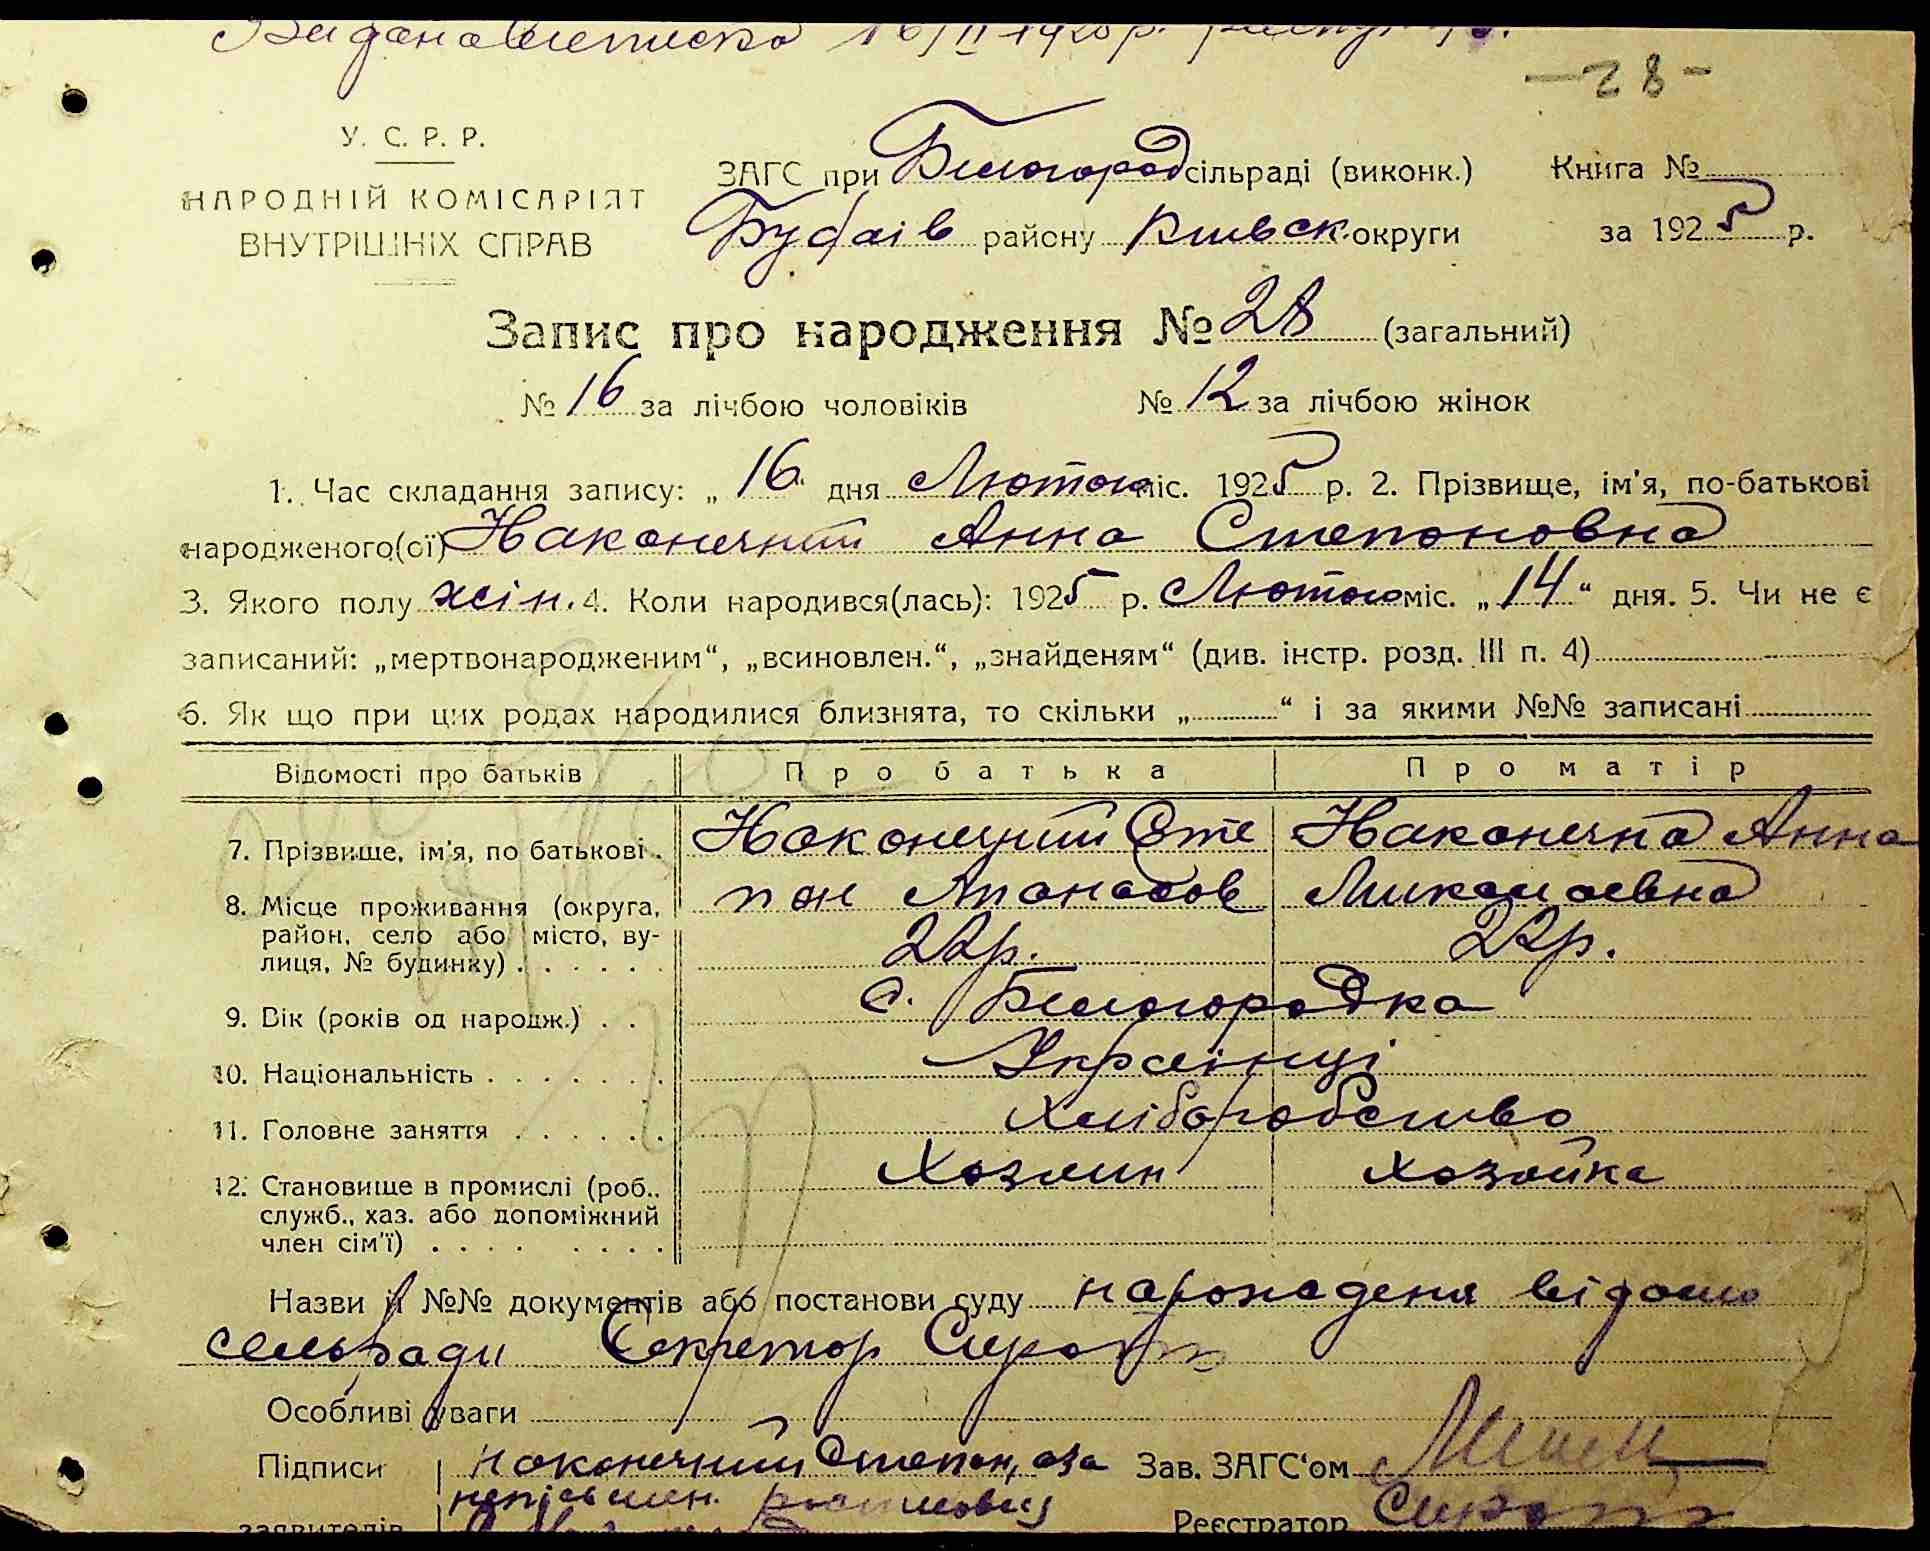 Видана виписка 16/II 1925 р.
— 28 -
У. С. Р. Р.
НАРОДНІЙ КОМІСАРІЯТ
ВНУТРІШНІХ СПРАВ
ЗАГС при Білогород сільраді (виконк.) Книга №
Будаїв району Київск. округи за 1925 р.
Запис про народження № 28 (загальний)
№ 16 за лічбою чоловіків № 12 за лічбою жінок
1. Час складання запису: „ 16 “ дня Лютого міс. 1925 р. 2. Прізвище, ім'я, по-батькові
народженого(ої) Наконечний Анна Степановна
3. Якого полу жін. 4. Коли народився(лась): 1925 р. Лютого міс. „ 14 “ дня. 5. Чи не є
записаний: „мертвонародженим“, „всиновлен.“, „знайденям“ (див. інстр. розд. III п. 4)
6. Як що при цих родах народилися близнята, то скільки „ “ і за якими №№ записані
Відомості про батьків Про батька Про матір
7. Прізвище, ім'я, по батькові . Наконечний Сте Наконечна Анна
8. Місце проживання (округа, пан Апанасов Миколаевна
район, село або місто, ву-
лиця, № будинку) . . . . . . 22 р. 22 р.
9. Вік (років од народж.) . . с. Білогородка
10. Національність . . . . . . . Українці
11. Головне заняття . . . . . . Хліборобство
12. Становище в промислі (роб., Хозяин Хозяйка
служб., хаз. або допоміжний
член сім'ї) . . . . . . . .
Назви й №№ документів або постанови суду народженя відомо
сельради Секретар Сирота
Особливі уваги
Підписи Наконечний Степан, а за Зав. ЗАГС'ом
неписьмен.
заявителів Реєстратор Сирота